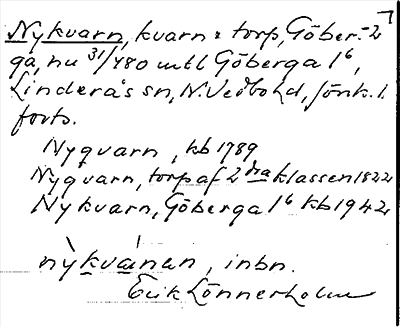 Nykvarn, kvarn o torp, Göber-
ga, nu 31/480 mtl Göberga 1⁶,
Linderås sn, N. Vedbo hd, Jönk. l.
forts.
Nyqvarn, kb 1789
Nyqvarn, torp af 2dra klassen 1822
Nykvarn, Göberga 1⁶ kb 1942
nỳkvánan, inbn.
Erik Lönnerholm